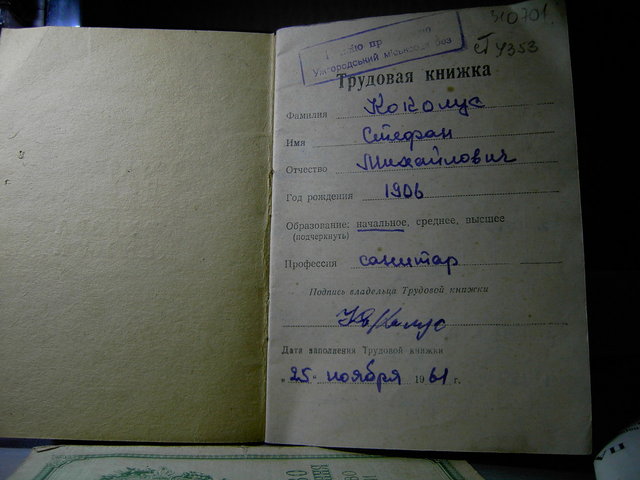 310701.
СТ 4353
Ужгородський міський
Трудовая книжка
Фамилия Коколус
Имя Стефан
Отчество Михайлович
Год рождения 1906
Образование: начальное, среднее, высшее
(подчеркнуть)
Профессия санитар
Подпись владельца Трудовой книжки
Дата заполнения Трудовой книжки
"25" ноября 1961 г.